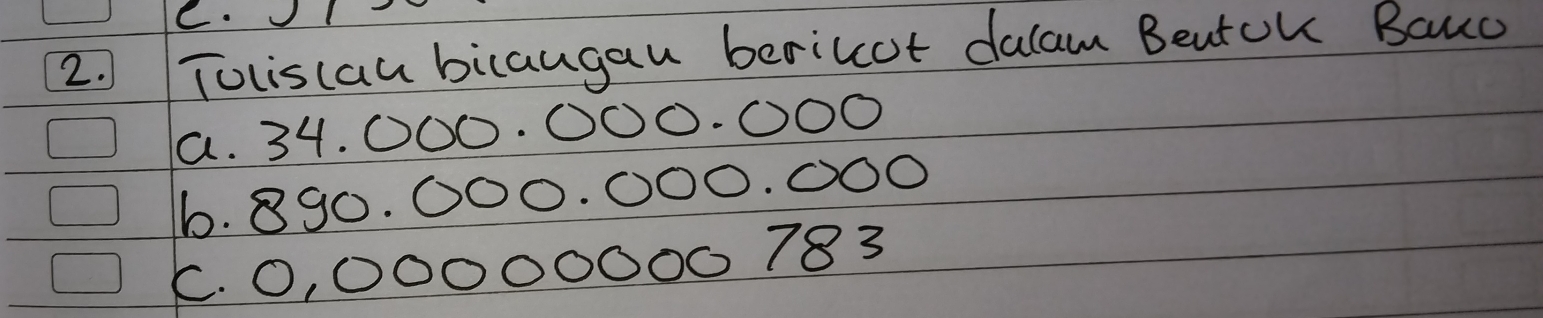 2. Tulislah bilangan berikut dalam Bentuk Baku
a. 34.000.000.000
b. 890.000.000.000
c. 0,00000000783